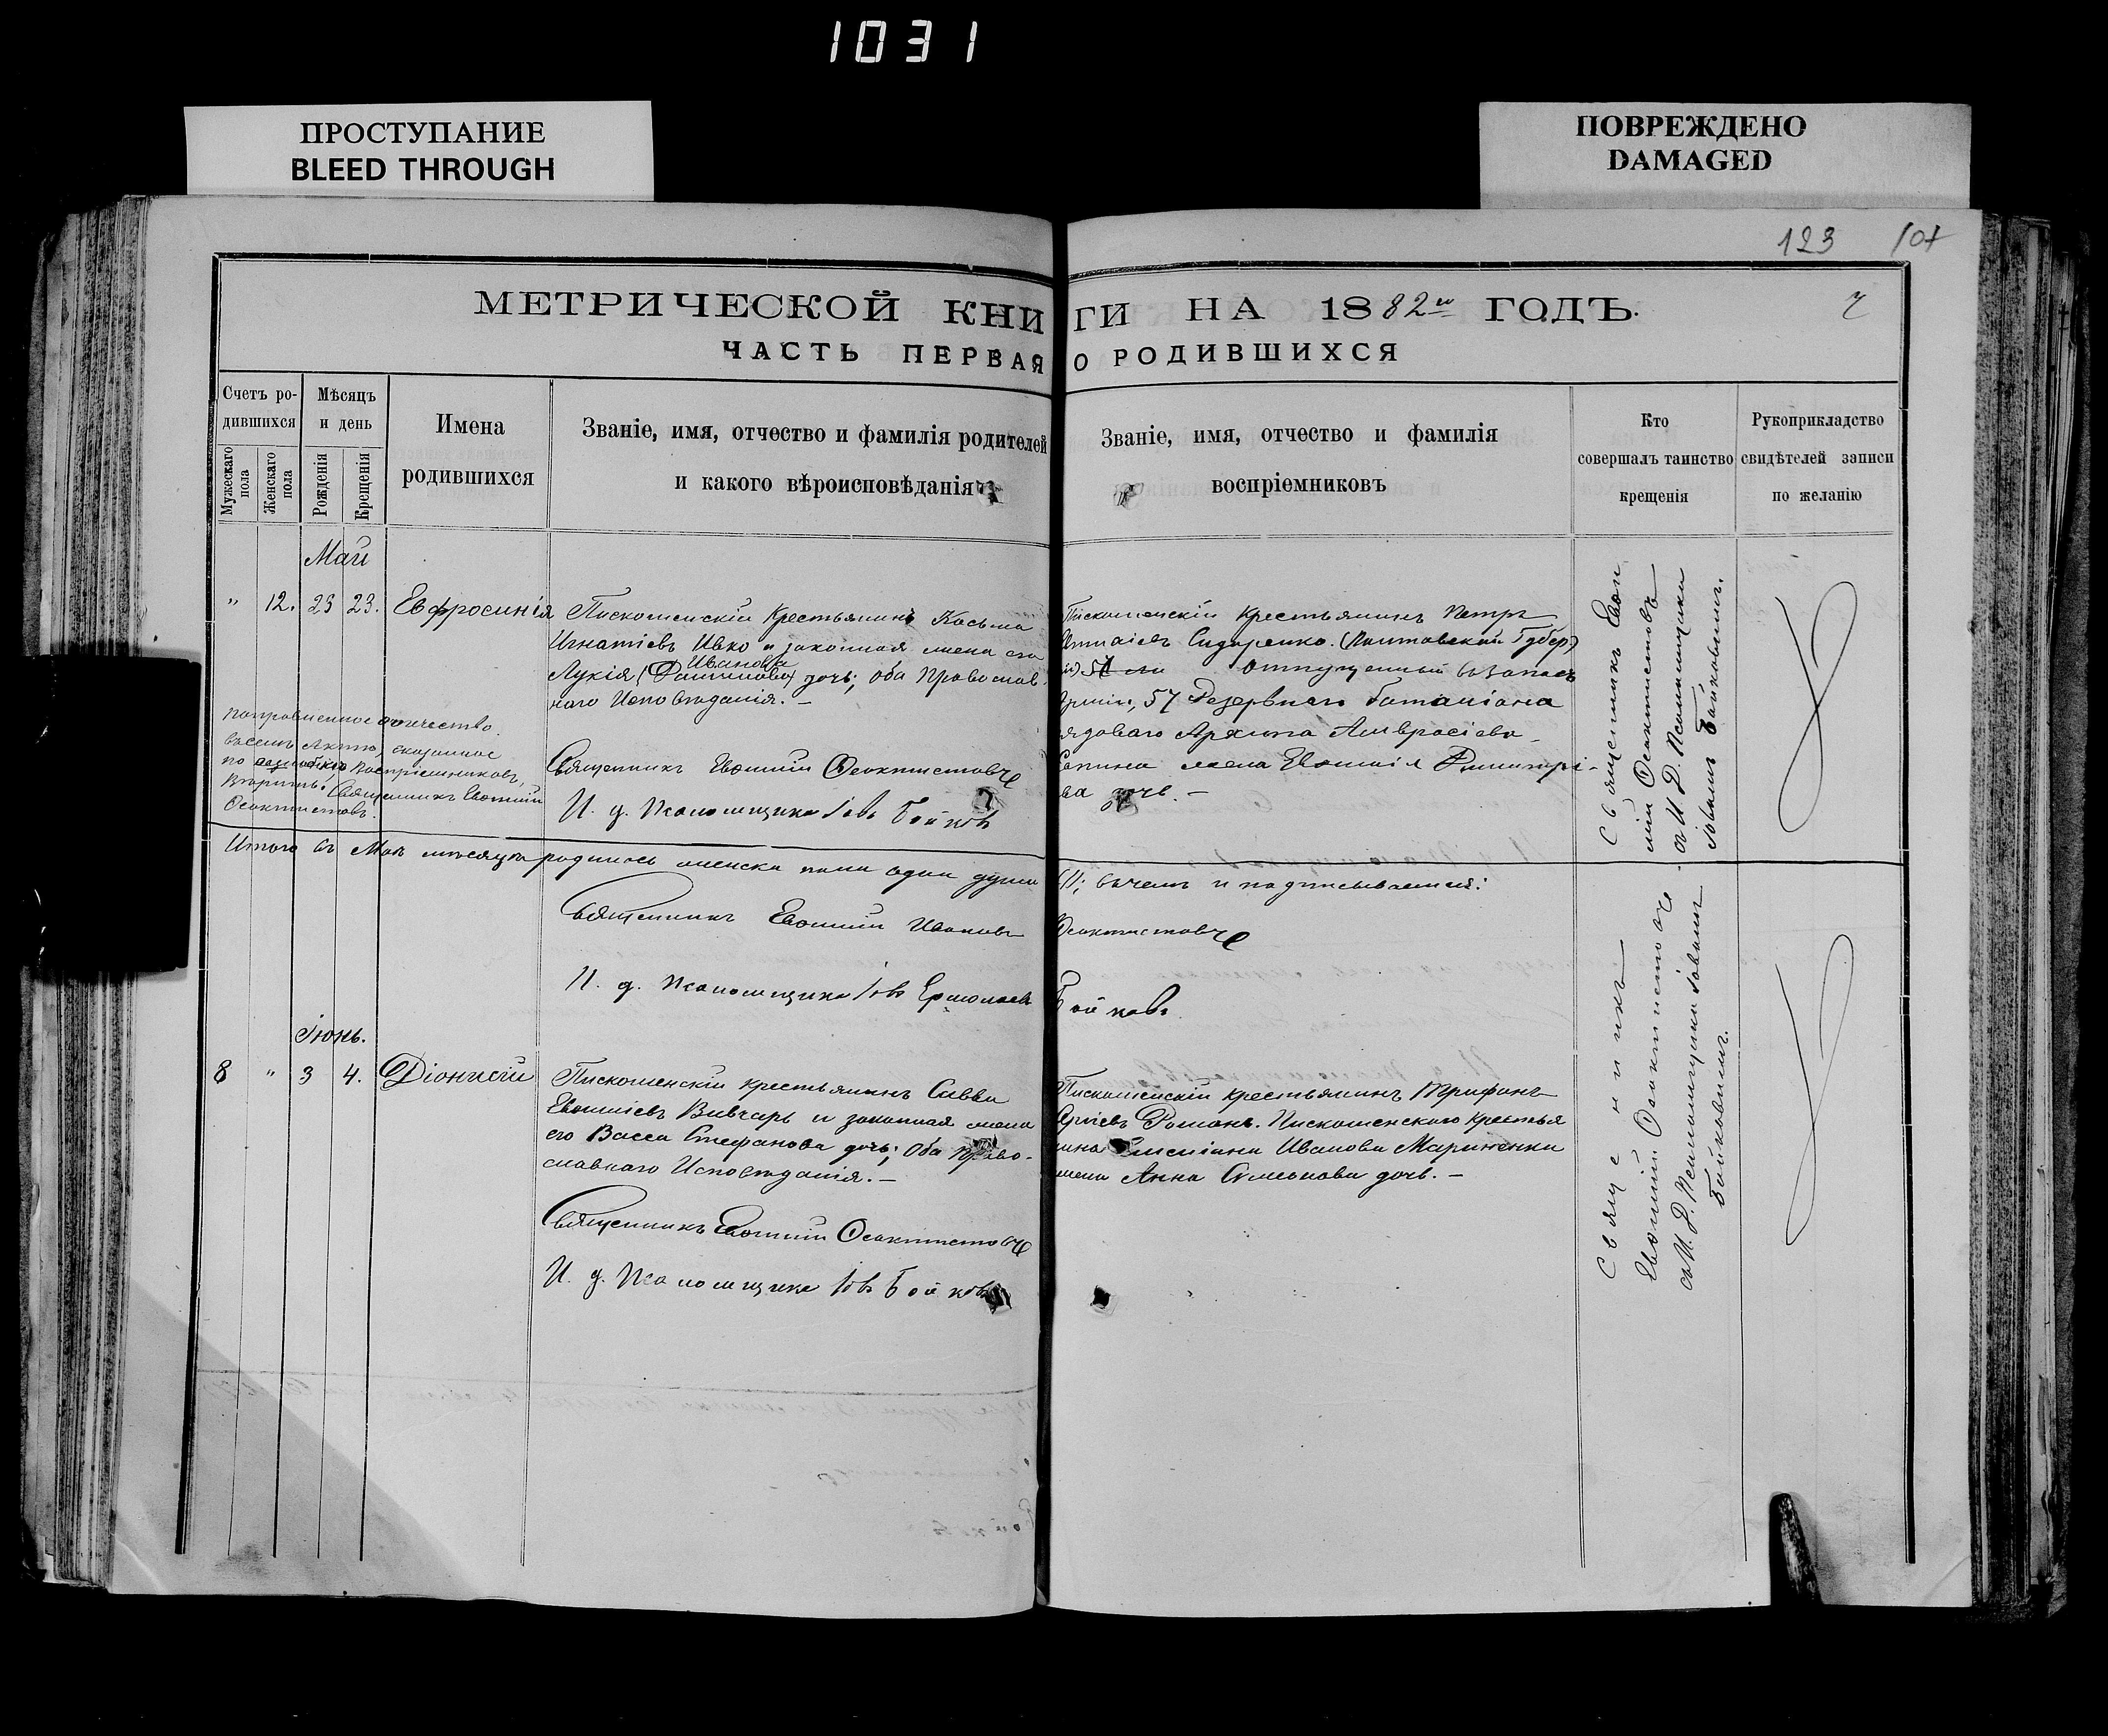 1031
ПРОСТУПАНИЕ
BLEED THROUGH
ПОВРЕЖДЕНО
DAMAGED
123 107
МЕТРИЧЕСКОЙ КНИГИ НА 1882й ГОДЪ.
ЧАСТЬ ПЕРВАЯ О РОДИВШИХСЯ
Счетъ ро-
дившихся
Мужескаго пола
Женскаго пола
Мѣсяцъ
и день
Рожденія
Крещенія
Имена
родившихся
Званіе, имя, отчество и фамилія родителей
и какого вѣроисповѣданія
Званіе, имя, отчество и фамилія
воспріемниковъ
Кто
совершалъ таинство
крещенія
Рукоприкладство
свидѣтелей записи
по желанію
Май
" 12. 23 23. Евфросинія
Пискошенскій Крестьянинъ Косьма
Игнатіевъ Ивко и законная жена его
Ивановa
Лукія дочь; оба Православ-
наго Исповѣданія. —
Священникъ Евѳимій Ѳеоктистовъ
И. д. Псаломщика Іовъ Бойковъ
поправленное отчество
Священникъ Евѳимій
Ѳеоктистовъ.
Пискошенскій крестьянинъ Петръ
Сидоренко. (Полтавской Губер
отпущенный въ запасъ
Арміи, 57 Резервнаго баталіона
рядоваго Архипа Амвросіева
жена Евѳимія Димитрі-
ева дочь. —
Священникъ Евѳи
мій Ѳеоктистовъ
съ И. Д. Псаломщика
Іовомъ Бойковымъ.
Итого въ Маѣ мѣсяцѣ родилось женска пола одна душа
(1); въ чемъ и подписываемся:
Священникъ Евѳимій Ивановъ Ѳеоктистовъ
И. д. Псаломщика Іовъ Ермолаевъ Бойковъ.
Іюнь.
8 " 3 4. Діонисій
Пискошенскій крестьянинъ Савва
Евѳиміевъ Вивчарь и законная жена
его Васса Стефанова дочь; Оба Право-
славнаго Исповѣданія. —
Священникъ Евѳимій Ѳеоктистовъ
И. д. Псаломщика Іовъ Бойковъ
Пискошенскій крестьянинъ Трифонъ
Романъ. Пискошенскаго крестья
нина Иванова Мариненки
жена Анна Симеонова дочь. —
Священникъ
Евѳимій Ѳеоктистовъ
съ И. Д. Псаломщика Іовомъ
Бойковымъ.